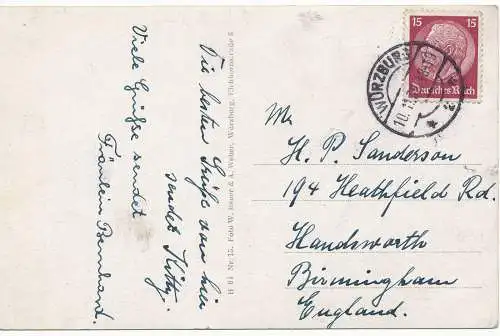 Die besten Grüße von hier
sendet Kitty.
Viele Grüße sendet
Fräulein Bernhard.
H 61 Nr. 15. Foto W. Bauer & A. Weber, Würzburg,
15 15
Deutsches Reich
WÜRZBURG
Mr
H. P. Sanderson
194 Heathfield Rd.
Handsworth
Birmingham
England.